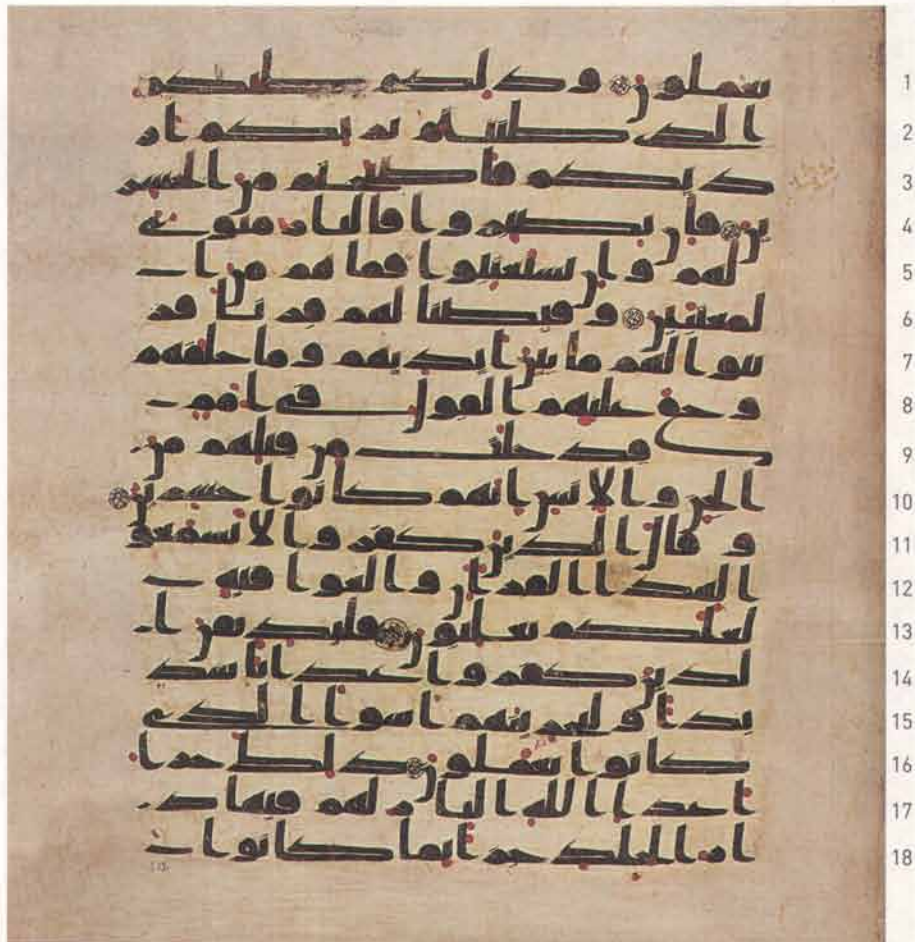 تعملون وذلكم ظنكم 1
الذى ظننتم بربكم ار 2
دىكم فاصبحتم من الخسر 3
ين فان يصبروا فالنار مثوى 4
لهم وان يستعتبوا فما هم من ا 5
لمعتبين وقيضنا لهم قرنا فز 6
ينوا لهم ما بين ايديهم وما خلفهم 7
وحق عليهم القول فى امم 8
قد خلت من قبلهم من 9
الجن والانس انهم كانوا خسرين 10
وقال الذين كفروا لا تسمعوا 11
لهذا القران والغوا فيه 12
لعلكم تغلبون فلنذيقن ا 13
لذين كفروا عذابا شد 14
يدا ولنجزينهم اسوا الذى 15
كانوا يعملون ذلك جزا 16
اعدا الله النار لهم فيها د 17
ار الخلد جزا بما كانوا 18